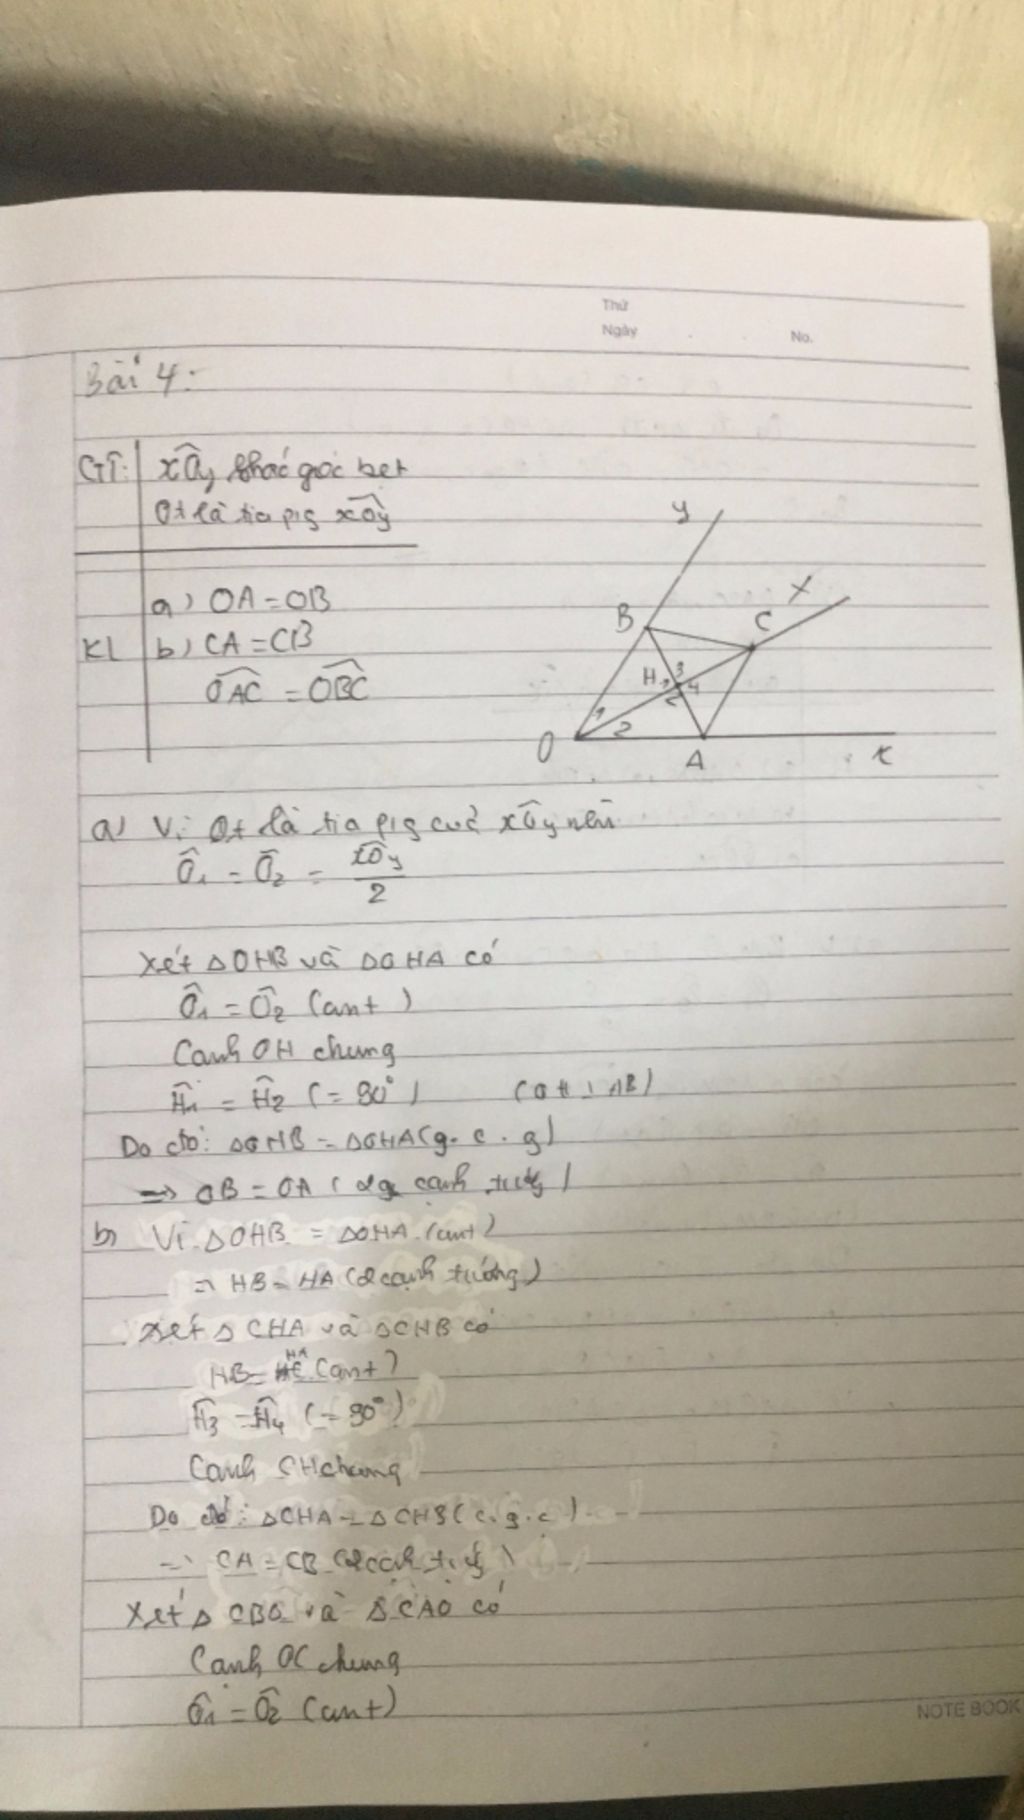 Thứ
Ngày
No.
Bài 4:
GT: xÔy khác góc bẹt
Ot là tia p/g xÔy
a) OA = OB
KL b) CA = CB
OAC = OBC
y
B
C
H 1 3
2 4
1
2
O
A
x
a) Vì Ot là tia p/g cuả xÔy nên
Ô1 = Ô2 = xÔy
2
Xét △OHB và △OHA có
Ô1 = Ô2 (cmt)
Cạnh OH chung
Ĥ1 = Ĥ2 (= 90°) (OH ⊥ AB)
Do đó: △OHB = △OHA (g. c. g)
⇒ OB = OA ( 2 cạnh tứ)
b) Vì △OHB = △OHA (cmt)
⇒ HB = HA (2 cạnh tướng)
Xét △ CHA và △CHB có
HB = HA (cmt)
Ĥ3 = Ĥ4 (= 90°)
Cạnh CH chung
Do đó: △CHA = △CHB (c. g. c)
⇒ CA = CB (2 cạnh tứ)
Xét △ CBO và △CAO có
Cạnh OC chung
Ô1 = Ô2 (cmt)
NOTE BOOK